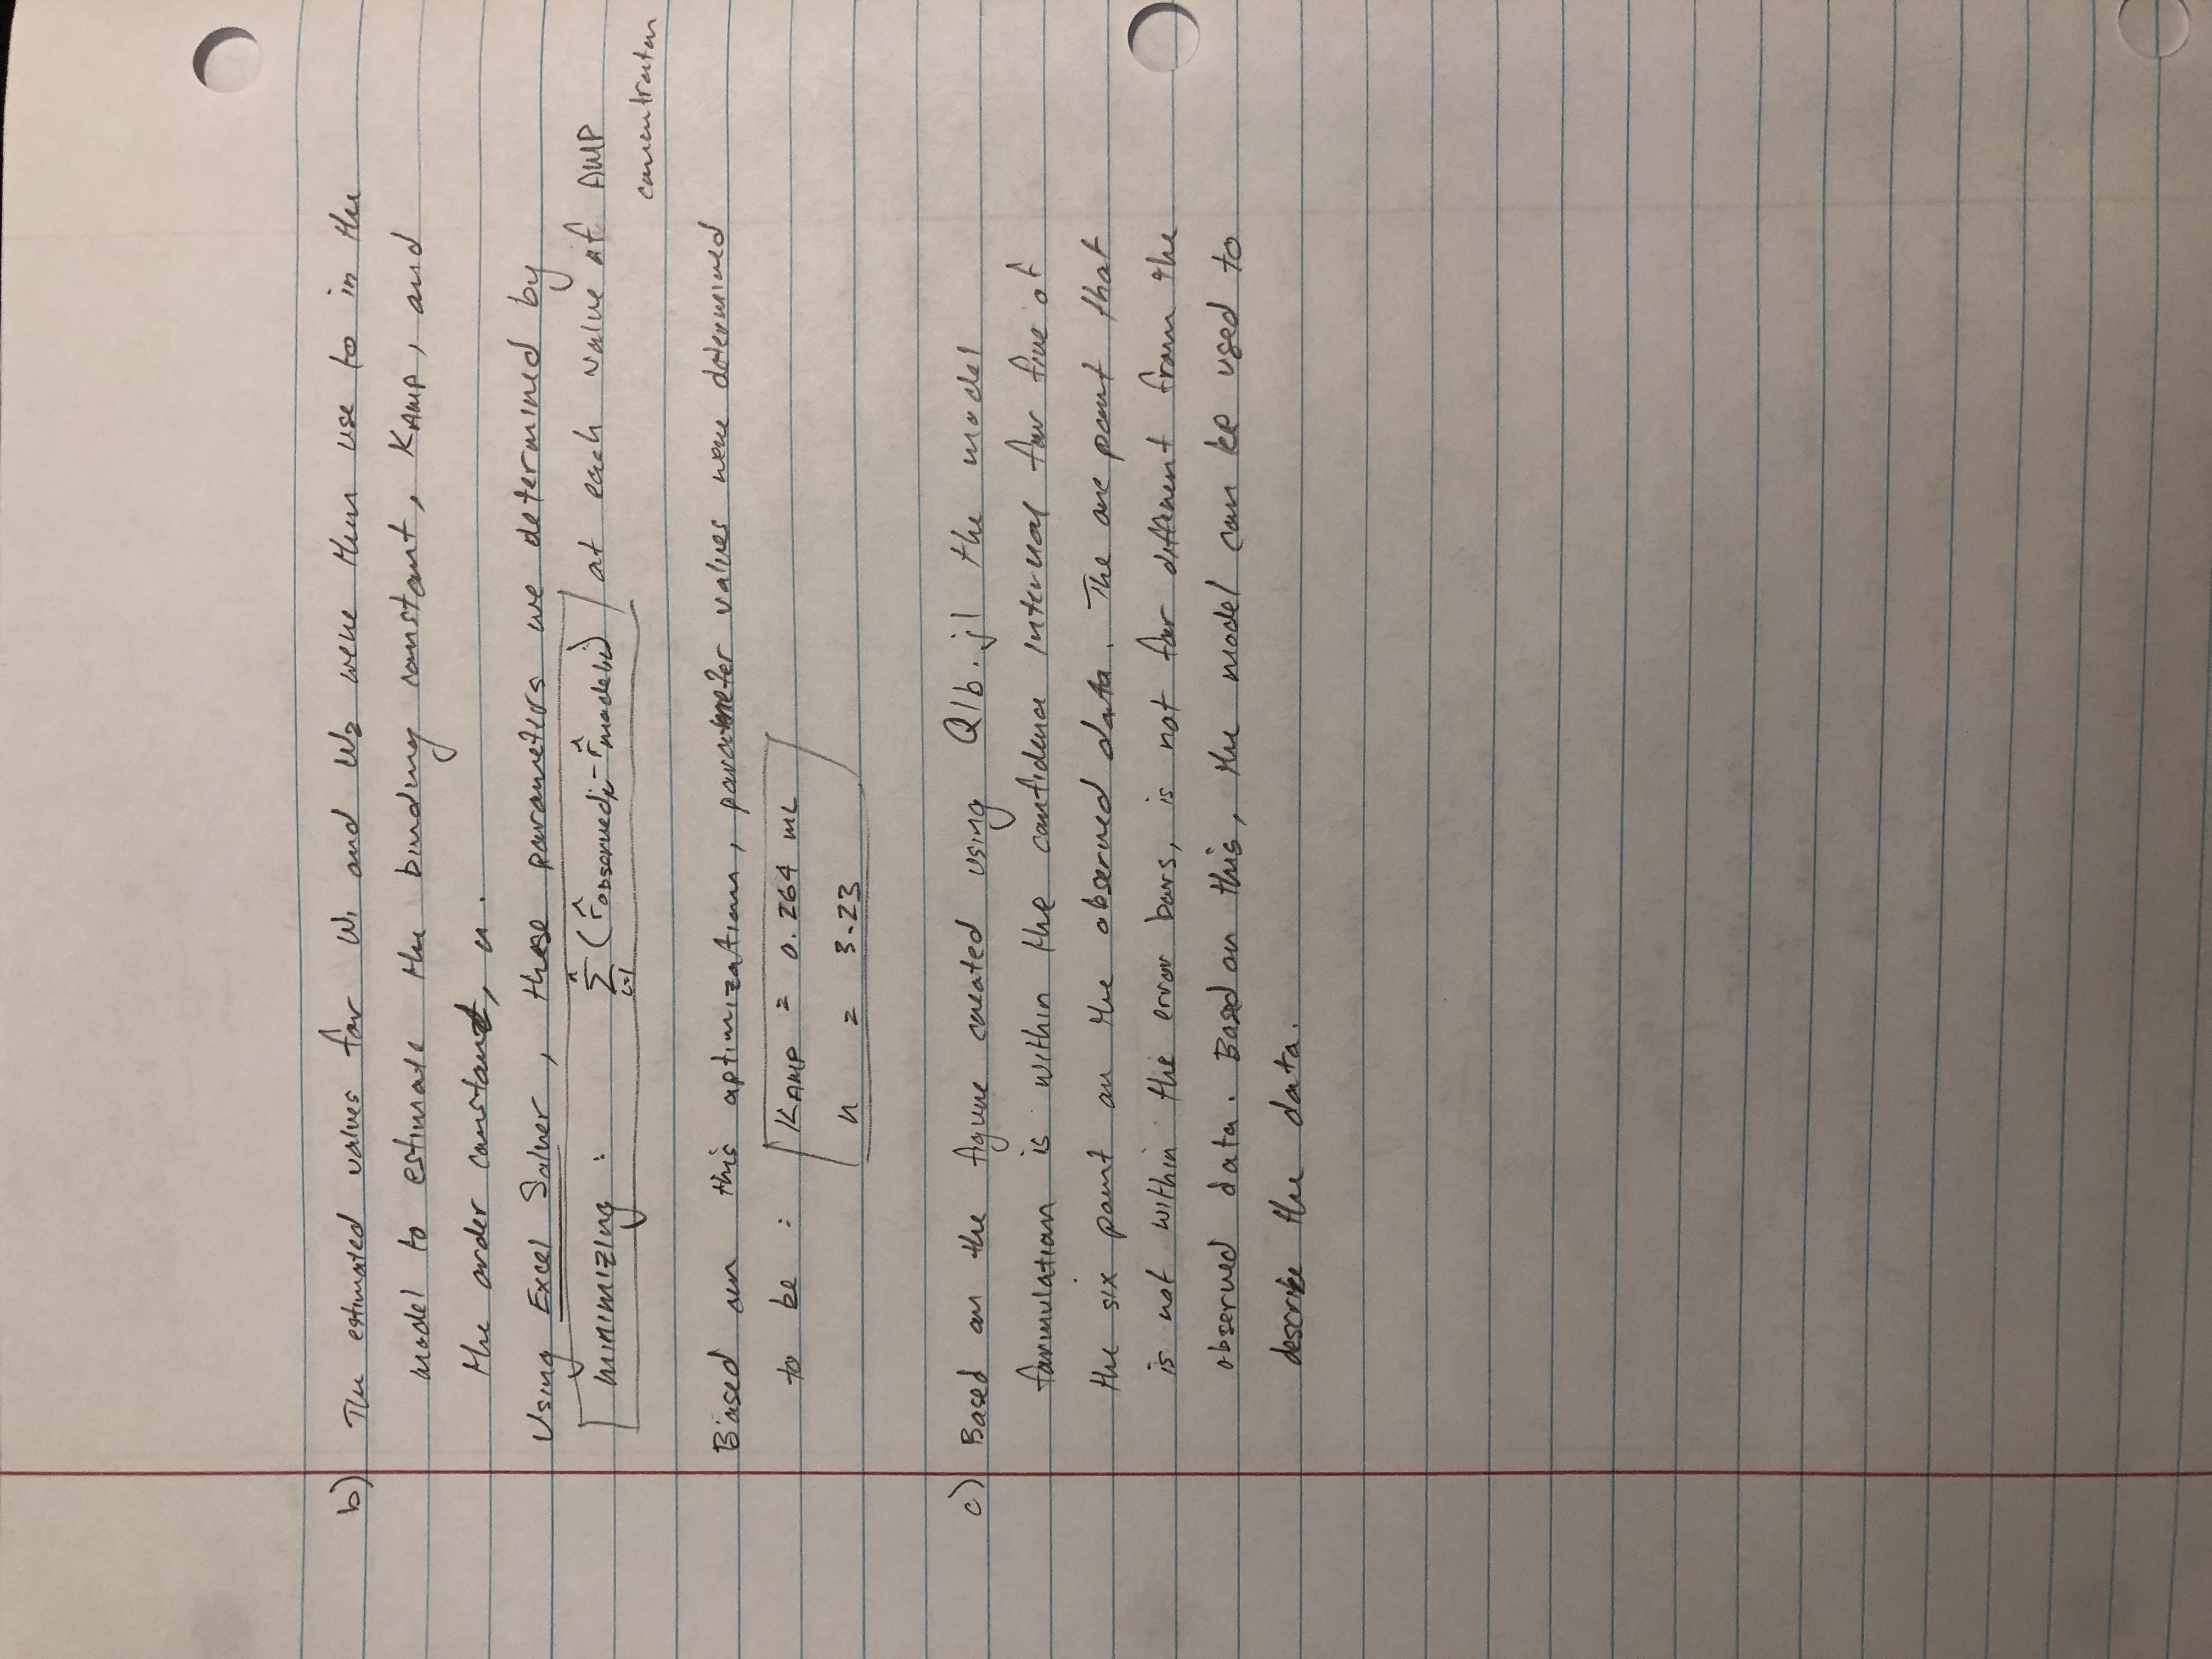 b) The estimated values for W1 and W2 were then use to in the
model to estimate the binding constant, KAMP, and
the order constant, n.
Using Excel Solver, these parameters we determined by
minimizing : n Σ i=1 (r̂observed,i - r̂model,i) at each value of AMP
concentraton
Based on this optimization, parameter values were determined
to be : KAMP = 0.264 mL
n = 3.23
c) Based on the figure created using Q1b.jl the model
formulation is within the confidence interval for five of
the six point on the observed data. The one point that
is not within the error bars, is not far different from the
observed data. Based on this, the model can be used to
describe the data.